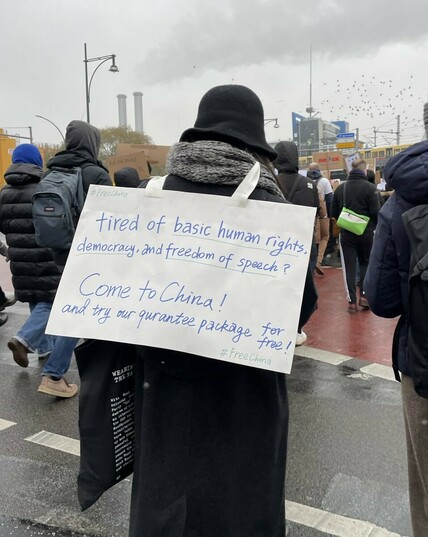 #FreeChina
tired of basic human rights,
democracy, and freedom of speech?
Come to China!
and try our qurantee package for
free!
#FreeChina
WEARING
THE